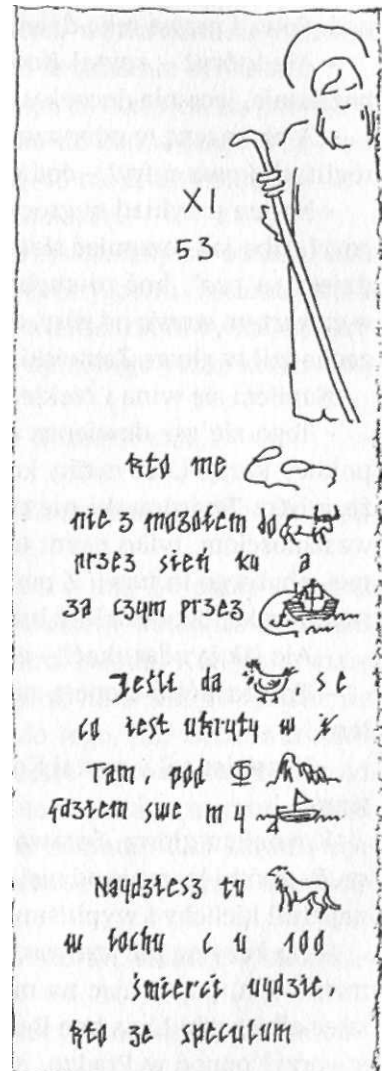 X I
53
kto me
nie z mozołem do
przez sieti ku a
za czym przez
Jesli da s e
co jest ukryty w
Tam, pod Φ
gdziem swe m
Naydziesz tu
w lochu c y 100
śmierci uydzie,
kto ze speculum